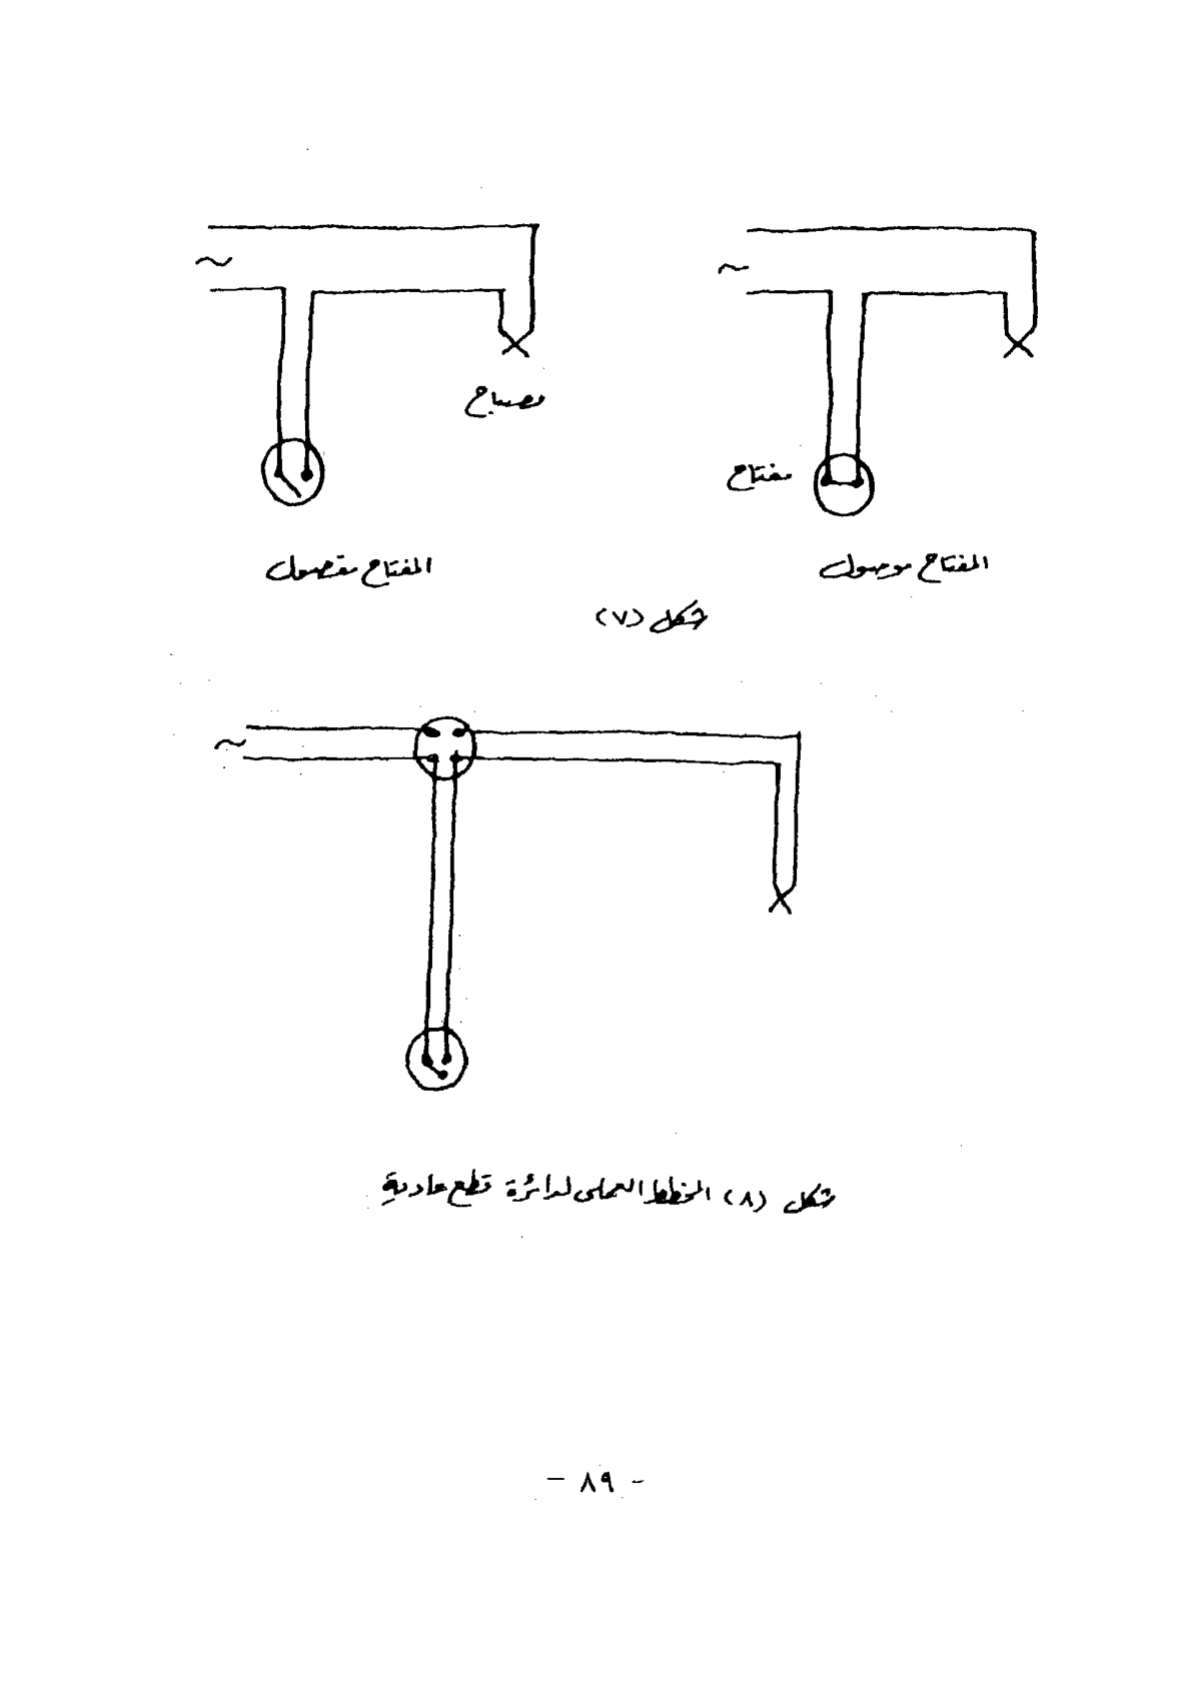 ~
~
مصباح
مفتاح
المفتاح موصول
المفتاح مفصول
شكل (٧)
~
شكل (٨) المخطط العملى لدائرة قطع عادية
- ٨٩ -